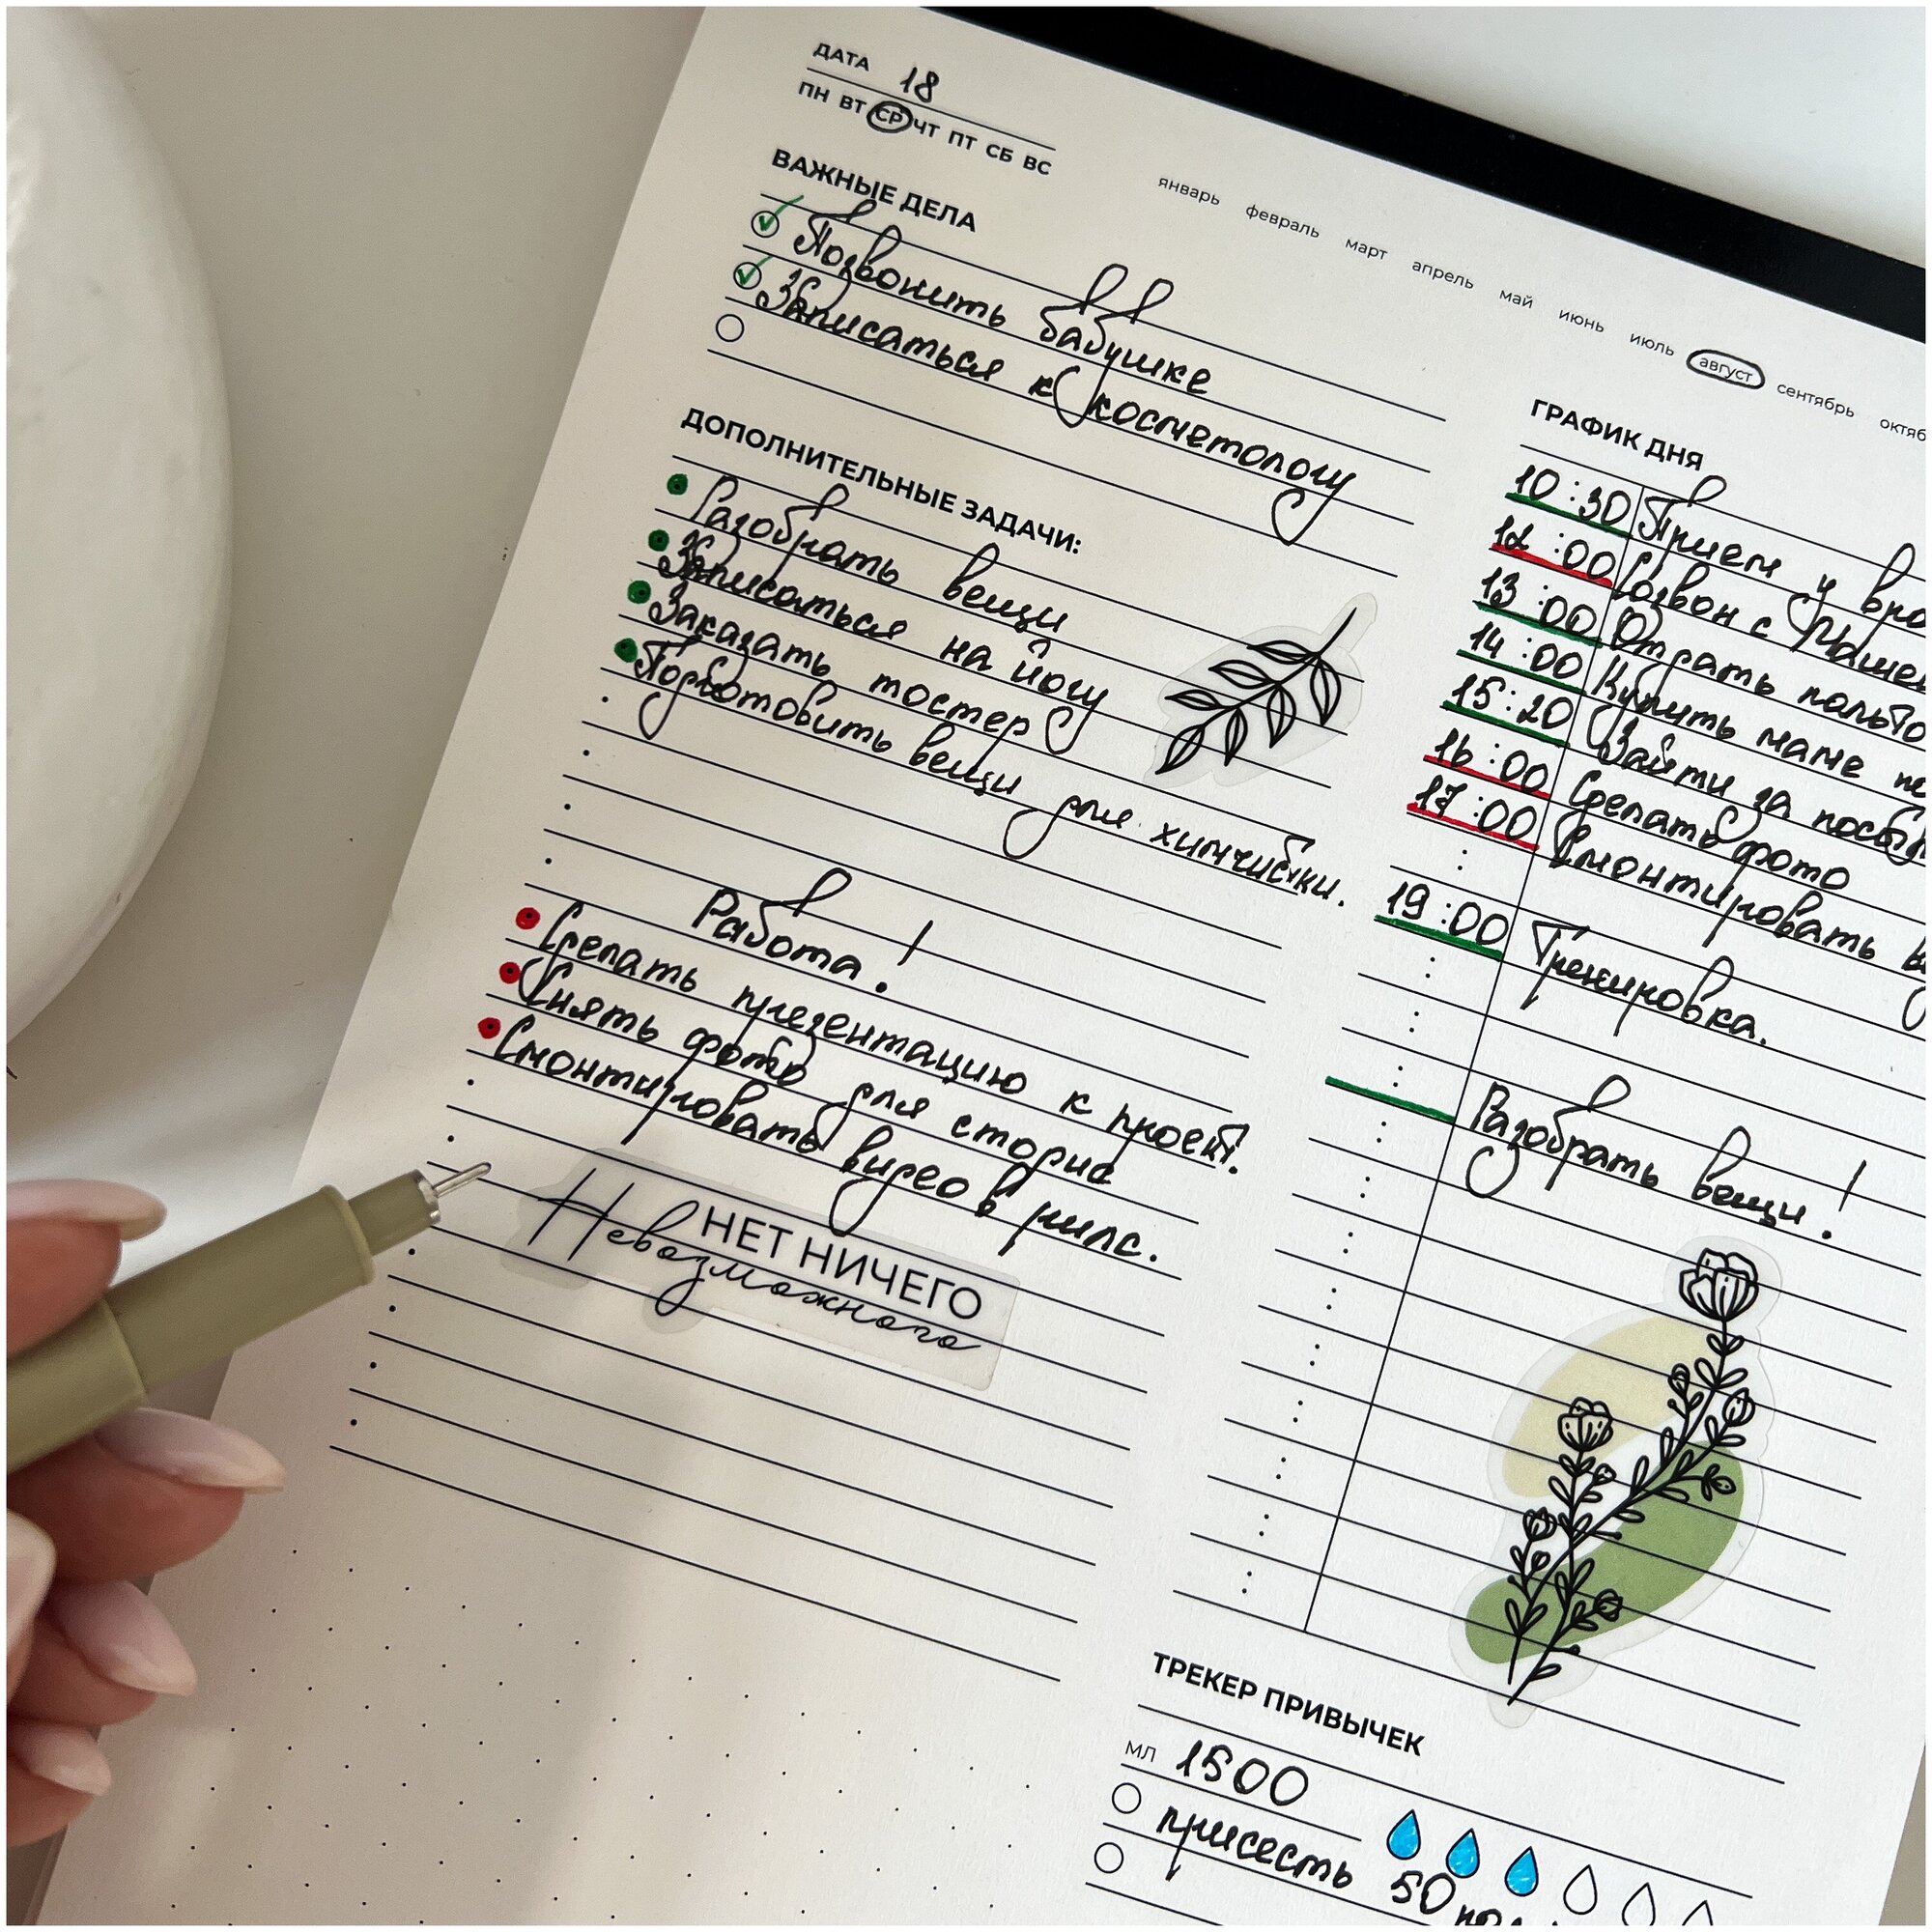 ДАТА 18
ПН ВТ СР ЧТ ПТ СБ ВС
январь февраль март апрель май июнь июль август сентябрь октяб
ВАЖНЫЕ ДЕЛА
Позвонить бабушке
Записаться к косметологу
ДОПОЛНИТЕЛЬНЫЕ ЗАДАЧИ:
Разобрать вещи
Записаться на йогу
Заказать тостер
Подготовить вещи для химчистки.
Работа!
Сделать презентацию к проект.
Снять фото для сторис
Смонтировать видео в рилс.
НЕТ НИЧЕГО
Невозможного
ГРАФИК ДНЯ
10:30 Прием у вра
12:00 Созвон с Машей
13:00 Отдать пальто
14:00 Купить маме
15:20 Зайти за посыл
16:00 Сделать фото
17:00 Смонтировать
19:00 Тренировка.
Разобрать вещи!
ТРЕКЕР ПРИВЫЧЕК
МЛ 1500
присесть 50